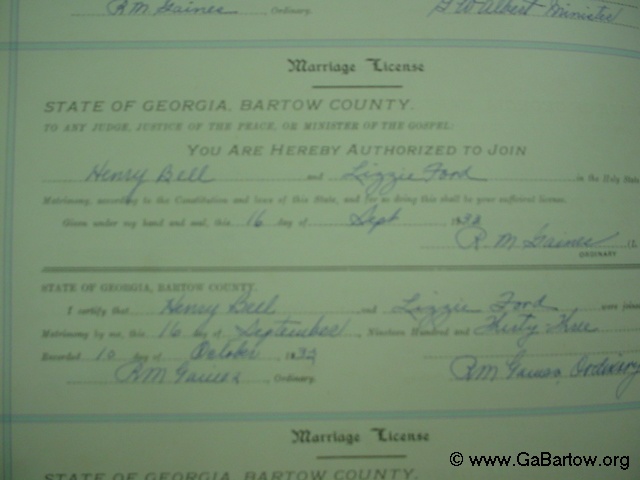 R M Gaines, Ordinary. G W Albert Minister
Marriage License
STATE OF GEORGIA, BARTOW COUNTY.
TO ANY JUDGE, JUSTICE OF THE PEACE, OR MINISTER OF THE GOSPEL:
YOU ARE HEREBY AUTHORIZED TO JOIN
Henry Bell and Lizzie Ford in the Holy State
Matrimony, according to the Constitution and laws of this State, and for so doing this shall be your sufficient license.
Given under my hand and seal, this 16 day of Sept 1933
R M Gaines
ORDINARY
STATE OF GEORGIA, BARTOW COUNTY.
I certify that Henry Bell and Lizzie Ford were joined
Matrimony by me, this 16 day of September, Nineteen Hundred and Thirty Three
Recorded 10 day of October 1933
R M Gaines, Ordinary. R M Gaines, Ordinary
Marriage License
STATE OF GEORGIA, BARTOW COUNTY.
© www.GaBartow.org